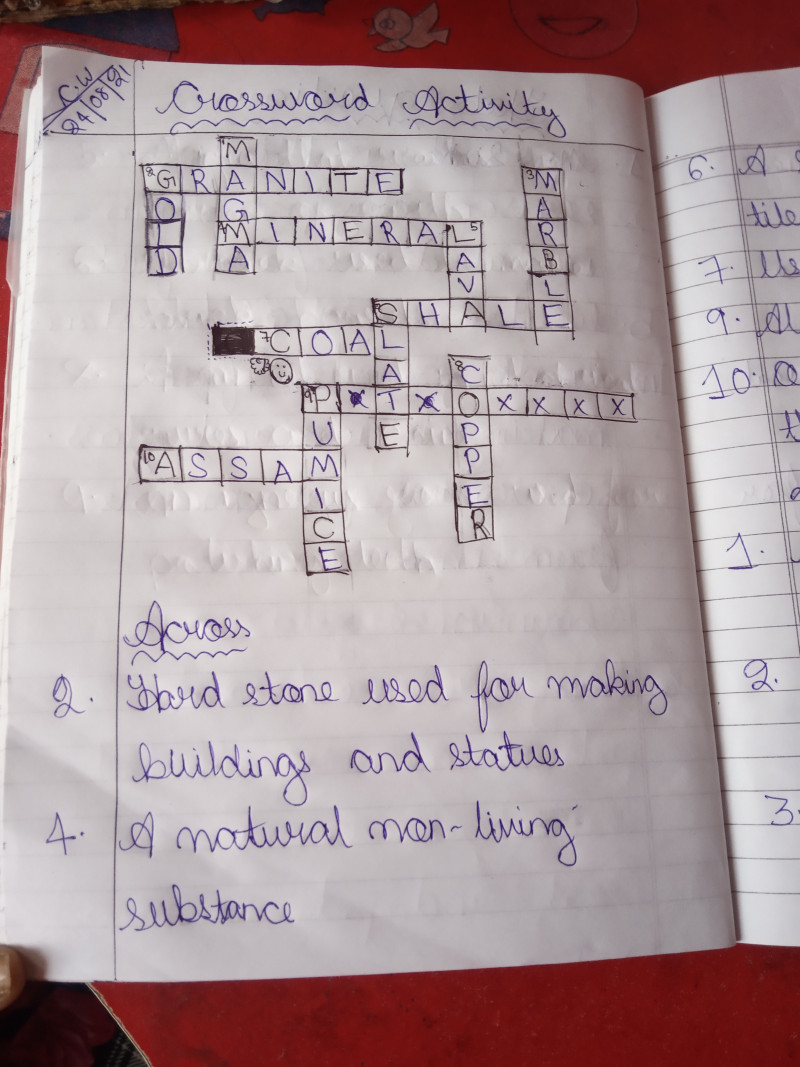 C.W
24/08/21
Crossword Activity
1M
2GRANITE
3M
O
G
A
L
4MINERAL5
R
D
A
A
B
V
L
6SHALE
7COAL
A
8C
9PxTxOxxxx
U
E
P
10ASSAM
P
I
E
C
R
E
Across
2. Hard stone used for making
buildings and statues
4. A natural non-living
substance
6. A
tile
7. Us
9. Al
10.
1.
2.
3.